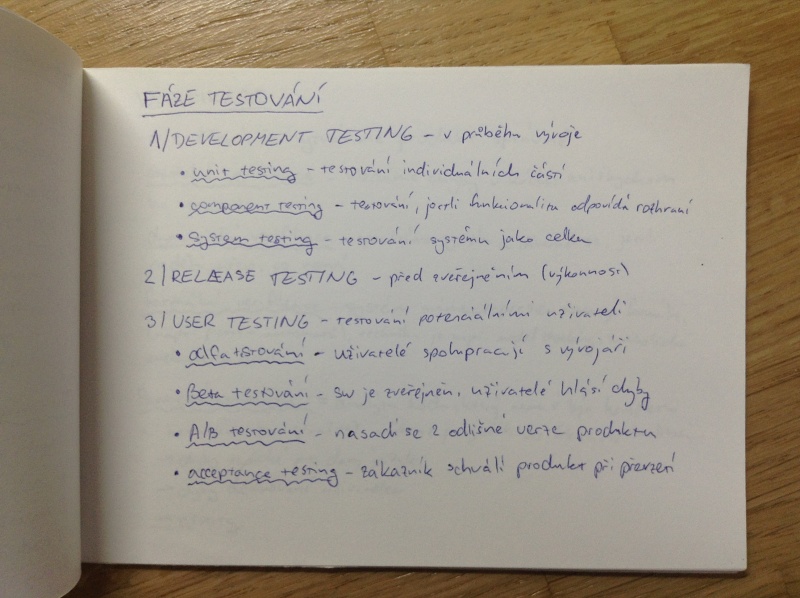 FÁZE TESTOVÁNÍ
1/ DEVELOPMENT TESTING – v průběhu vývoje
• unit testing – testování individuálních částí
• component testing – testování, jestli funkcionalita odpovídá rozhraní
• system testing – testování systému jako celku
2/ RELEASE TESTING – před zveřejněním (výkonnost)
3/ USER TESTING – testování potenciálními uživateli
• alfa testování – uživatelé spolupracují s vývojáři
• Beta testování – sw je zveřejněn, uživatelé hlásí chyby
• A/B testování – nasadí se 2 odlišné verze produktu
• acceptance testing – zákazník schválí produkt při převzetí